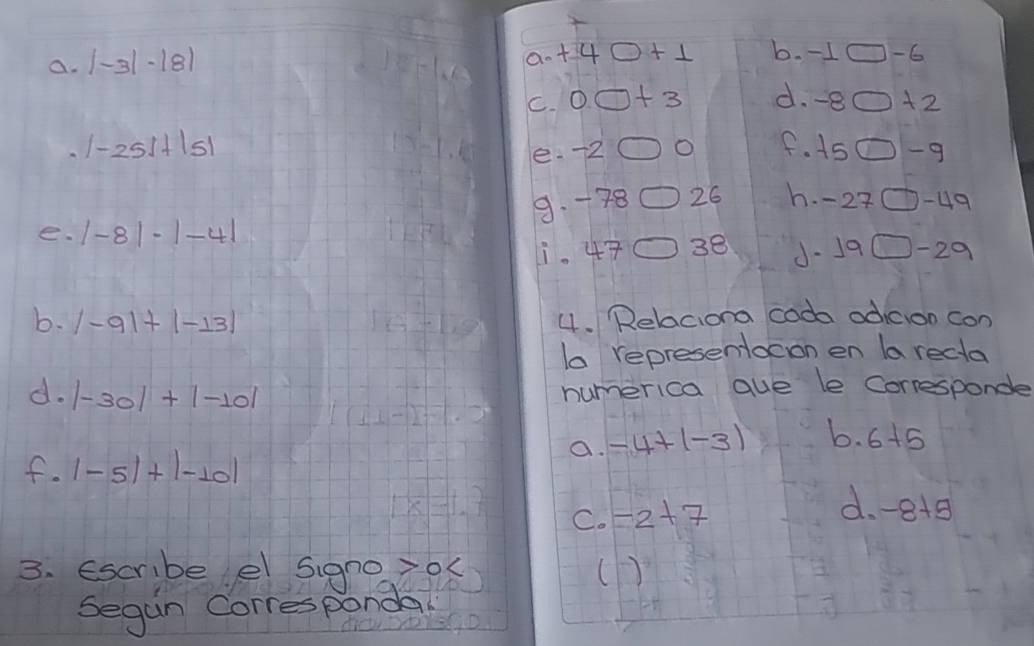 a. |-3| · |8|
. |-25| + |5|
e. |-8| · |-4|
b. |-9| + |-13|
d. |-30| + |-10|
f. |-5| + |-10|
3. Escribe el signo > o <
según corresponda.
a. +4 ▭ +1 b. -1 ▭ -6
c. 0 ▭ +3 d. -8 ▭ +2
e. -2 ▭ 0 f. +5 ▭ -9
g. -78 ▭ 26 h. -27 ▭ -49
i. 47 ▭ 38 j. 19 ▭ -29
4. Relaciona cada adicion con
la representacion en la recta
numérica que le corresponde
a. -4+(-3) b. 6+5
c. -2+7 d. -8+5
( )